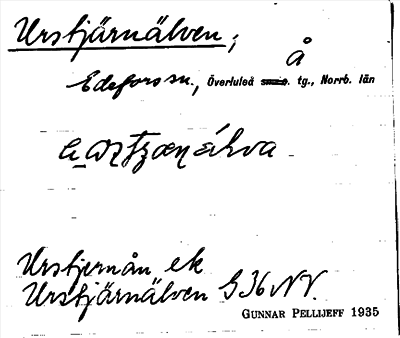 Urstjärnälven;
Å
Edefors sn., Överluleå tg., Norrb. län
Urstjernån ek
Urstjärnälven G 36 NV.
GUNNAR PELLIJEFF 1935